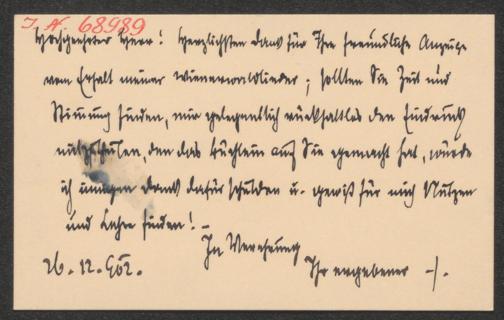 I.N. 68989
Hochgeehrter Herr! Herzlichsten Dank für Ihre freundliche Anzeige
vom Erhalt meiner Wienerwaldlieder; sollten Sie Zeit und
Stimmung finden, mir gelegentlich rückhaltlos den Eindruck
mitzuteilen, den das Büchlein auf Sie gemacht hat, würde
ich innigen Dank dafür schulden u. gewiß für mich Nutzen
und Lehre finden! –
In Verehrung
26.12.902.
Ihr ergebener